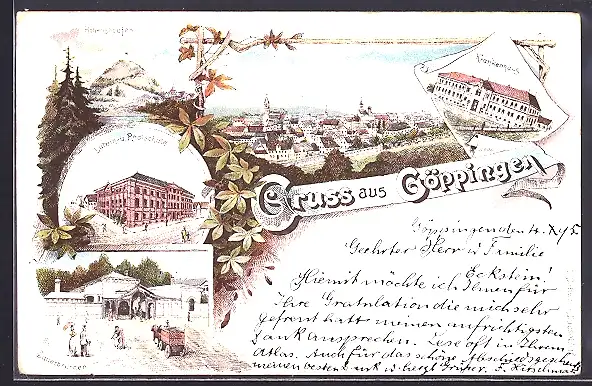 Hohenstaufen
Krankenhaus
Latein- u. Realschule
Gruss aus Göppingen
Göppingen den 4. X 95
Geehrter Herr u Familie
Eckstein!
Hiermit möchte ich Ihnen für
Ihre Gratulation die mich sehr
gefreut hatt meinen aufrichtigsten
Dank aussprechen. Lese oft in Ihrem
Atlas. Auch für das schöne Abschiedsgeschenk
meinen besten